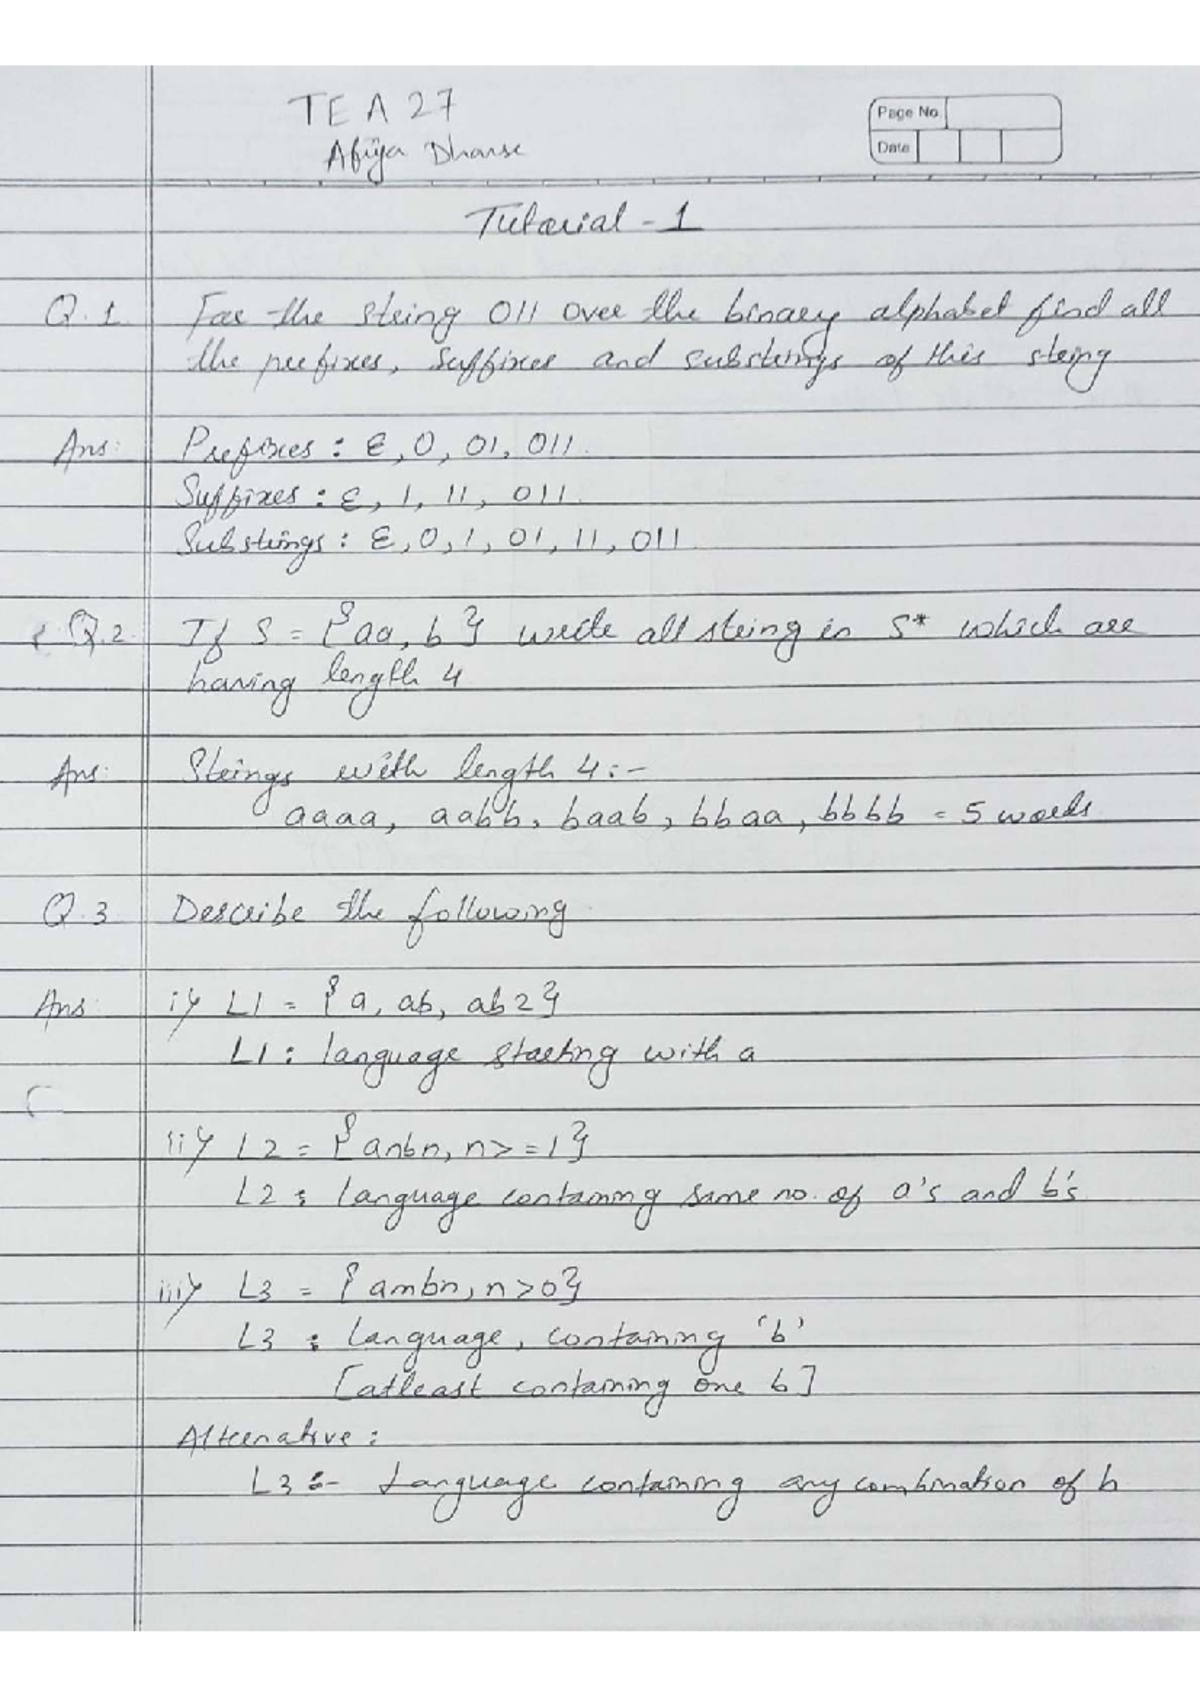 TE A 27
Afiya Dharse
Page No.
Date
Tutorial - 1
Q.1 For the string 011 over the binary alphabet find all
the prefixes, suffixes and substrings of this string
Ans: Prefixes : ε, 0, 01, 011.
Suffixes : ε, 1, 11, 011.
Substrings : ε, 0, 1, 01, 11, 011.
Q.2 If S = {aa, b} write all string in S* which are
having length 4
Ans: Strings with length 4 :-
aaaa, aabb, baab, bbaa, bbbb = 5 words
Q.3 Describe the following
Ans: i} L1 = {a, ab, ab2}
L1 : language starting with a
ii} L2 = {anbn, n>=1}
L2 : language containing same no. of a's and b's
iii} L3 = {ambn, n>0}
L3 : language, containing 'b'
[atleast containing one b]
Alternative :
L3 :- Language containing any combination of b